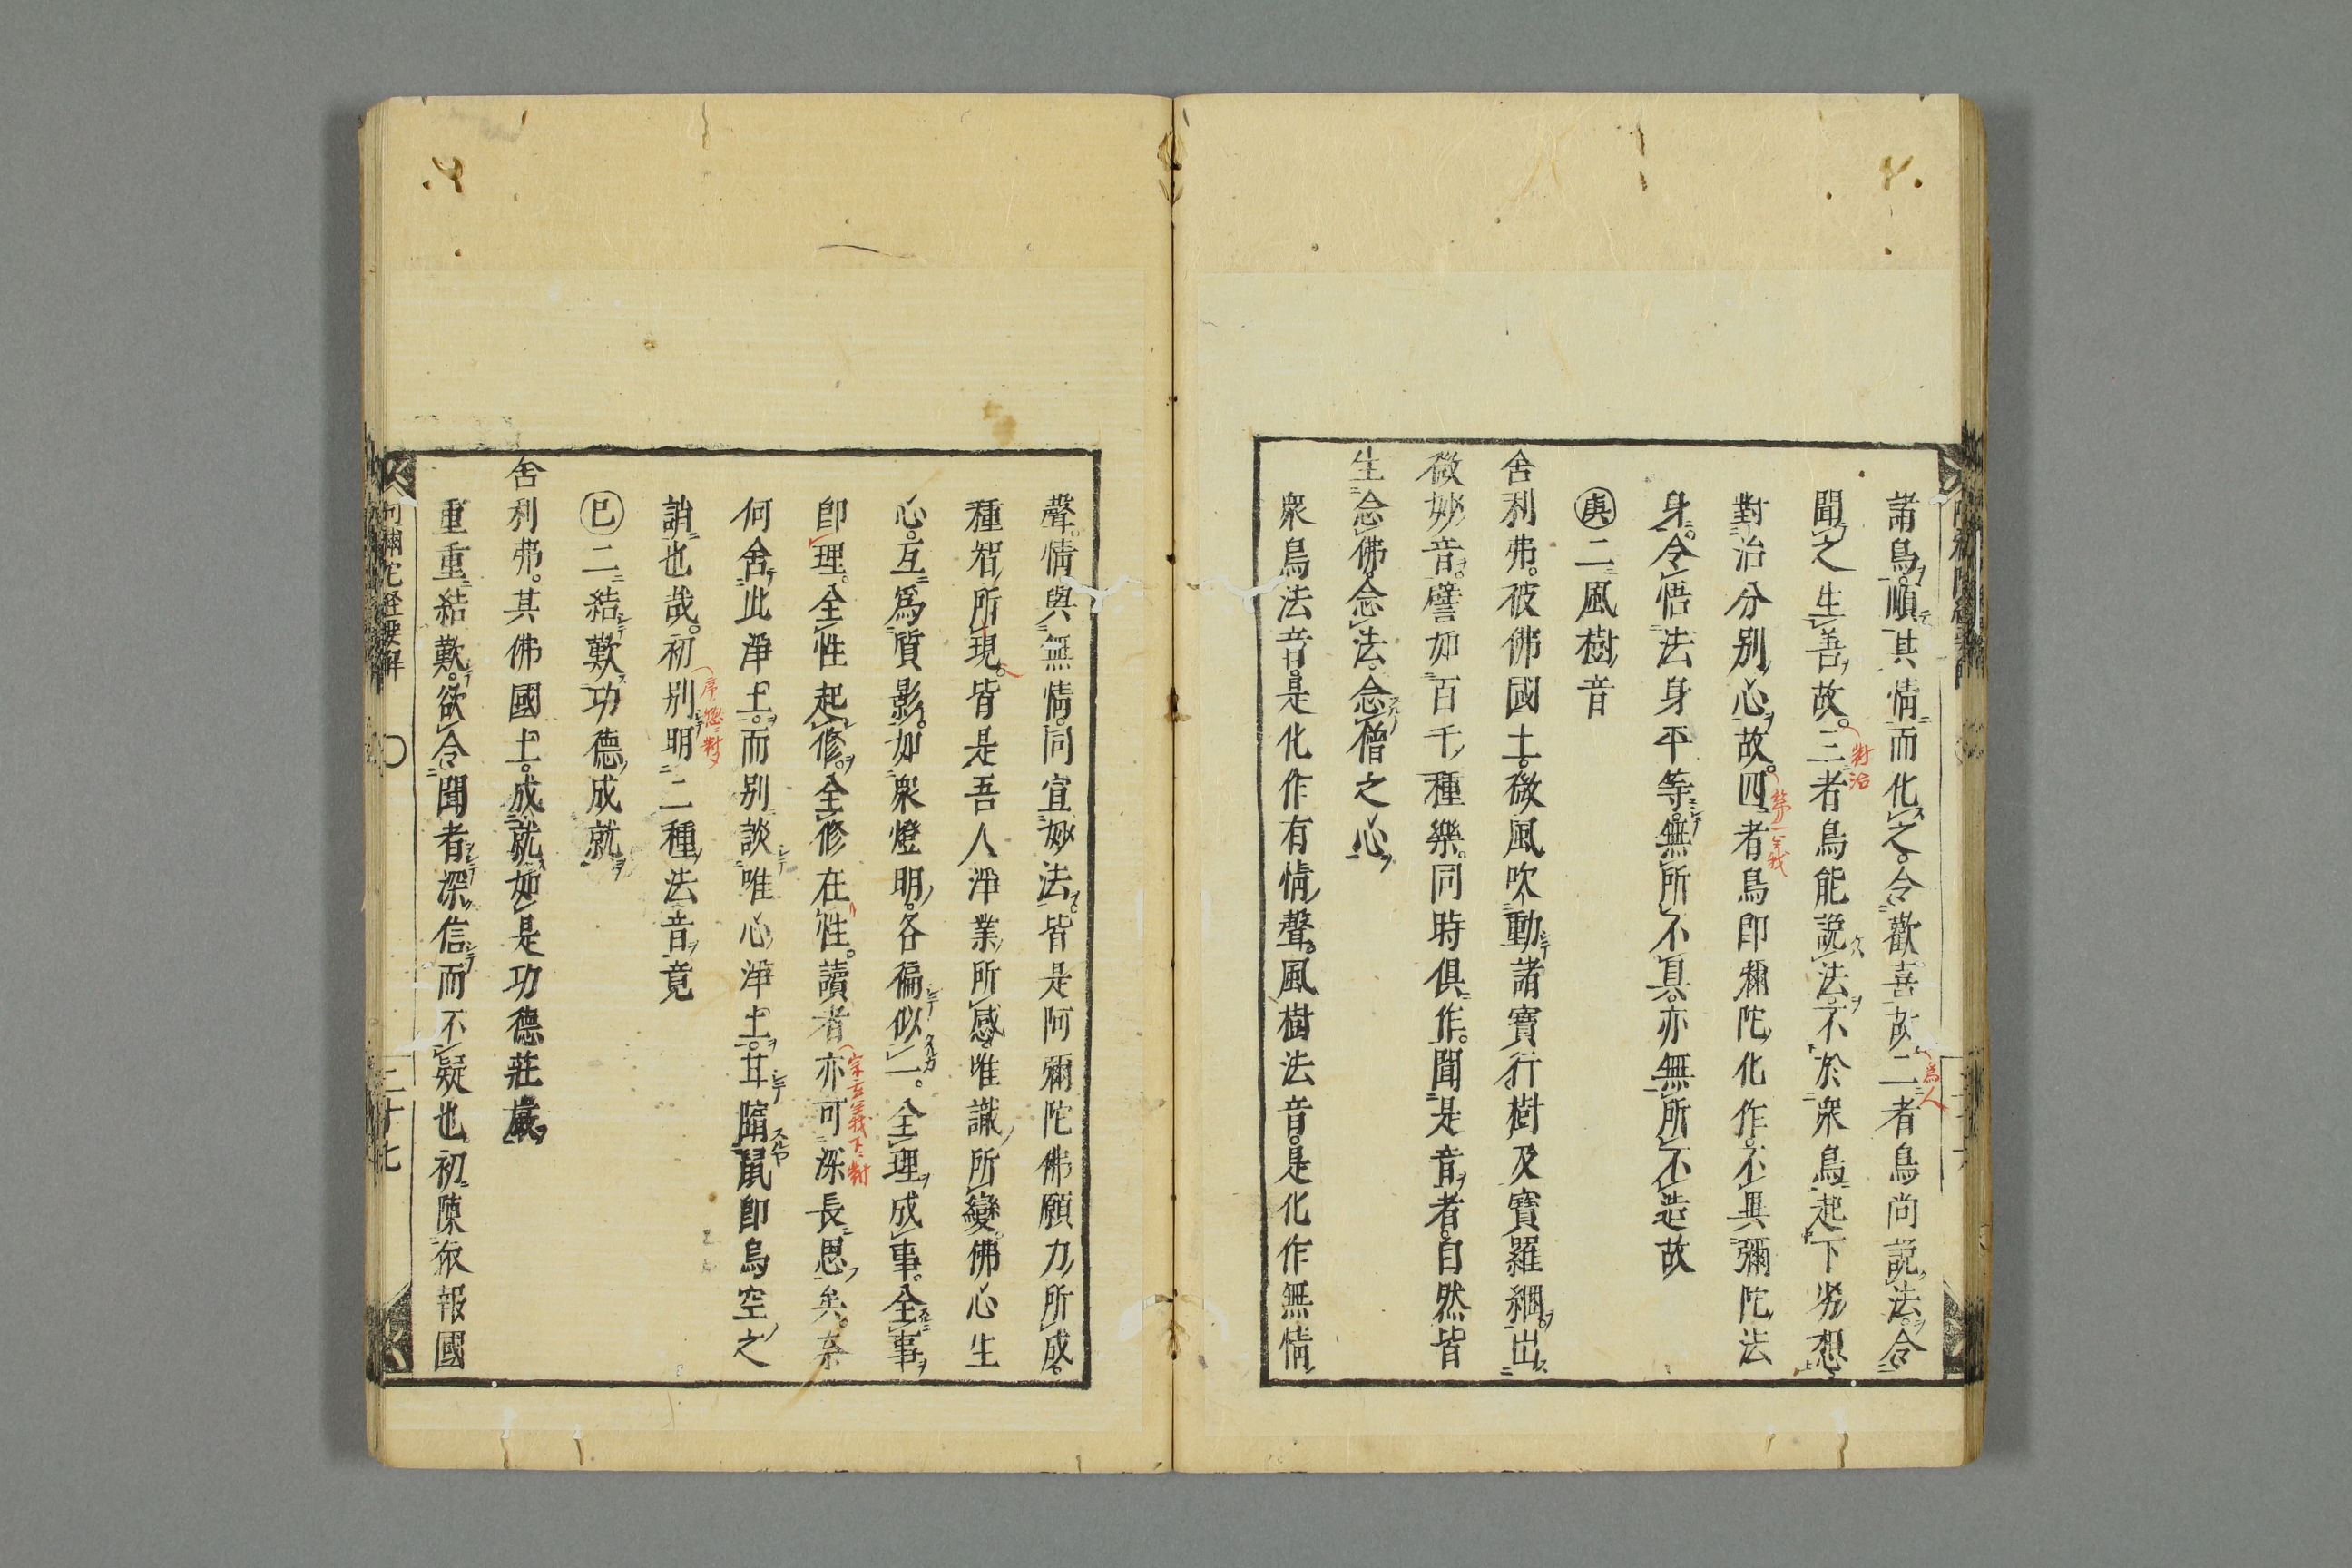 諸鳥。順其情而化之。令歡喜故二者鳥尚說法。令
聞之生善故。三者鳥能說法。不於衆鳥起下劣想。
對治分別心故。四者鳥即彌陀化作。不異彌陀法
身。令悟法身平等。無所不具。亦無所不造故
庚二風樹音
舍利弗。彼佛國土。微風吹動。諸寶行樹及寶羅網。出
微妙音。譬如百千種樂。同時俱作。聞是音者。自然皆
生念佛。念法。念僧之心
衆鳥法音。是化作有情聲。風樹法音。是化作無情
聲。情與無情。同宣妙法。皆是阿彌陀佛願力所成。
種智所現。皆是吾人淨業所感。唯識所變。佛心生
心。互爲質影。如衆燈明。各徧似一。全理成事。全事
即理。全性起修。全修在性。讀者亦可深長思矣。奈
何舍此淨土。而別談唯心淨土。甘墮鼠即鳥空之
誚也哉。初別明二種法音竟
巳二結歎功德成就
舍利弗。其佛國土。成就如是功德莊嚴
重重結歎。欲令聞者深信而不疑也。初陳依報國
爲人
對治
第一義
宗玄義下對
阿彌陀經要解
〇
二十七